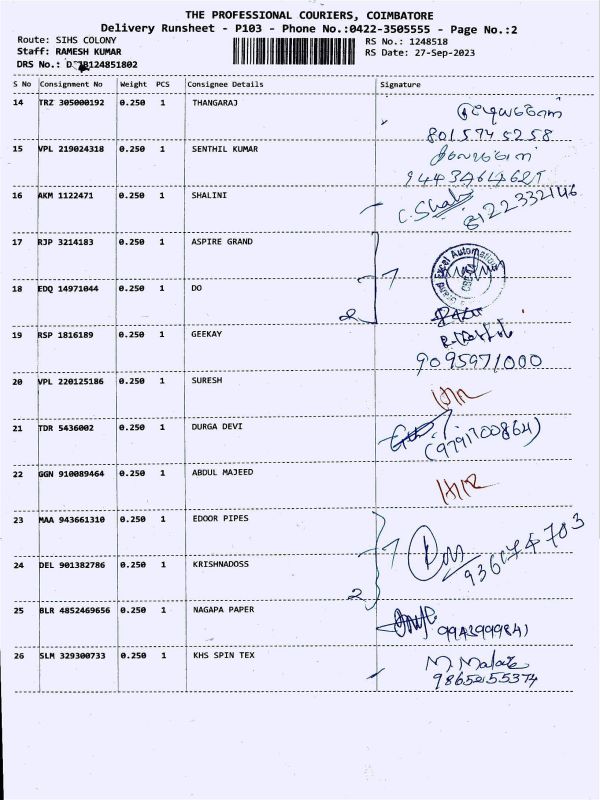 THE PROFESSIONAL COURIERS, COIMBATORE
Delivery Runsheet - P103 - Phone No.:0422-3505555 - Page No.:2
Route: SIHS COLONY
RS No.: 1248518
Staff: RAMESH KUMAR
RS Date: 27-Sep-2023
DRS No.:
S No Consignment No Weight PCS Consignee Details Signature
14 TRZ 305000192 0.250 1 THANGARAJ
8015745258
15 VPL 219024318 0.250 1 SENTHIL KUMAR
16 AKM 1122471 0.250 1 SHALINI
8122332146
17 RJP 3214183 0.250 1 ASPIRE GRAND
Excel Automation
18 EDQ 14971044 0.250 1 DO
2
19 RSP 1816189 0.250 1 GEEKAY
9095971000
20 VPL 220125186 0.250 1 SURESH
21 TDR 5436002 0.250 1 DURGA DEVI
(9791700864)
22 GGN 910089464 0.250 1 ABDUL MAJEED
23 MAA 943661310 0.250 1 EDOOR PIPES
24 DEL 901382786 0.250 1 KRISHNADOSS
2
25 BLR 4852469656 0.250 1 NAGAPA PAPER
26 SLM 329300733 0.250 1 KHS SPIN TEX